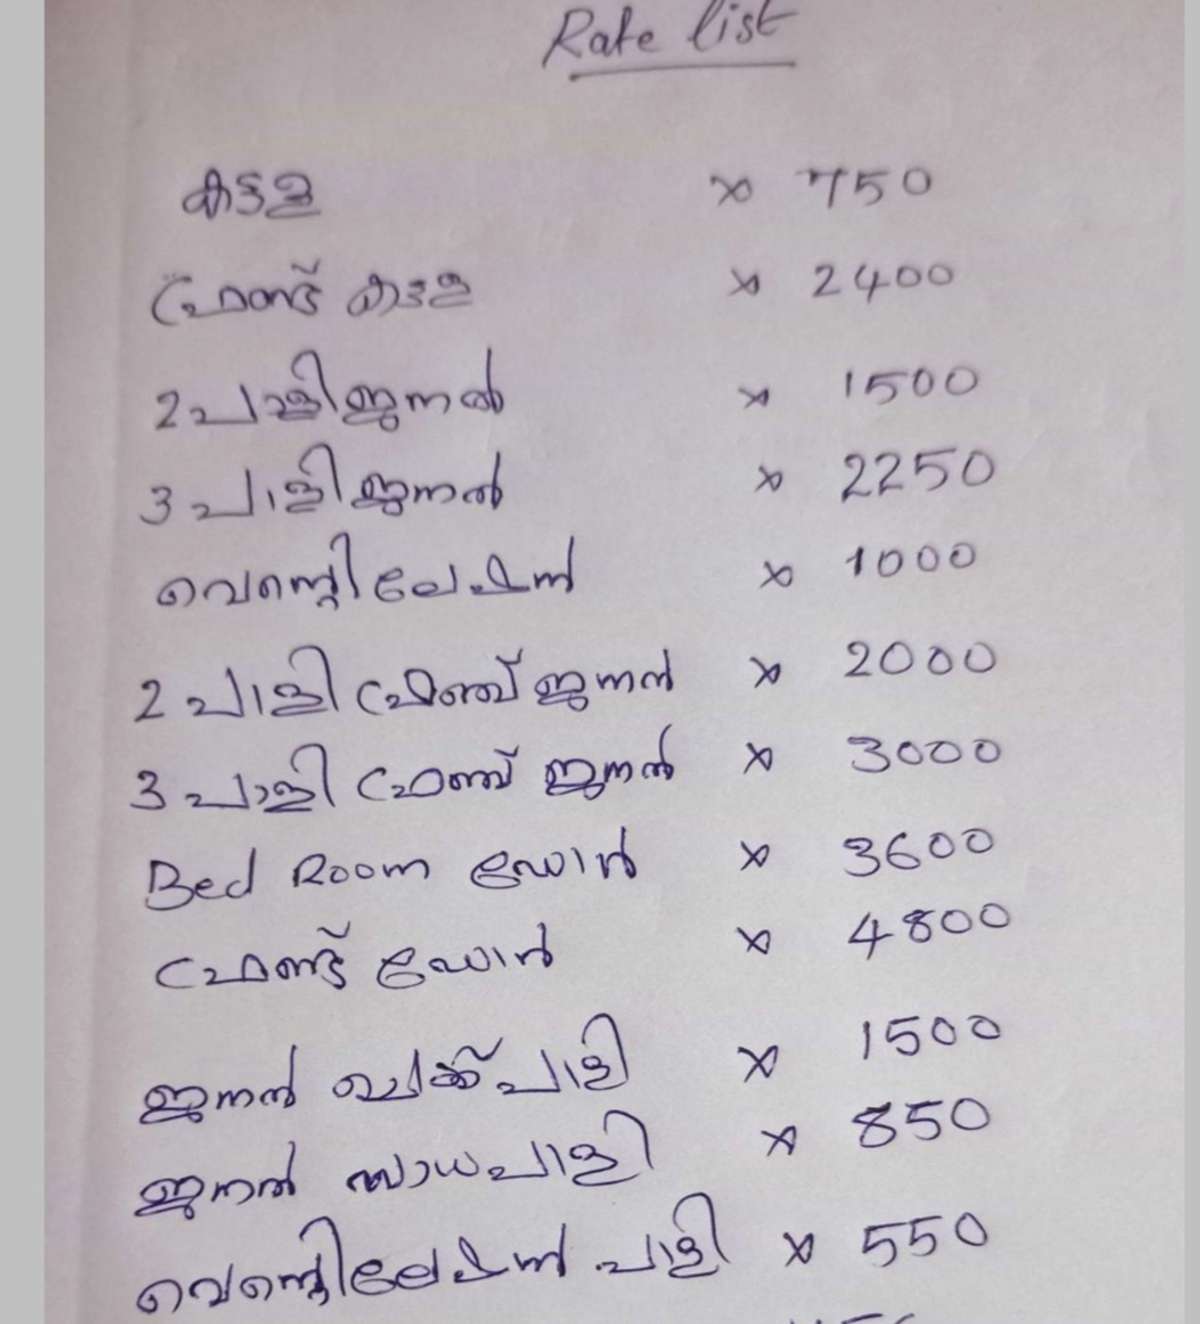 Rate list
കട്ടള x 750
ഫ്രണ്ട് കട്ടള x 2400
2 പാളി ജനൽ x 1500
3 പാളി ജനൽ x 2250
വെന്റിലേഷന്‍ x 1000
2 പാളി ഫ്രഞ്ച് ജനൽ x 2000
3 പാളി ഫ്രഞ്ച് ജനൽ x 3000
Bed Room ഡോർ x 3600
ഫ്രണ്ട് ഡോർ x 4800
ജനൽ പാളി x 1500
ജനൽ സാധ പാളി x 850
വെന്റിലേഷന്‍ പാളി x 550